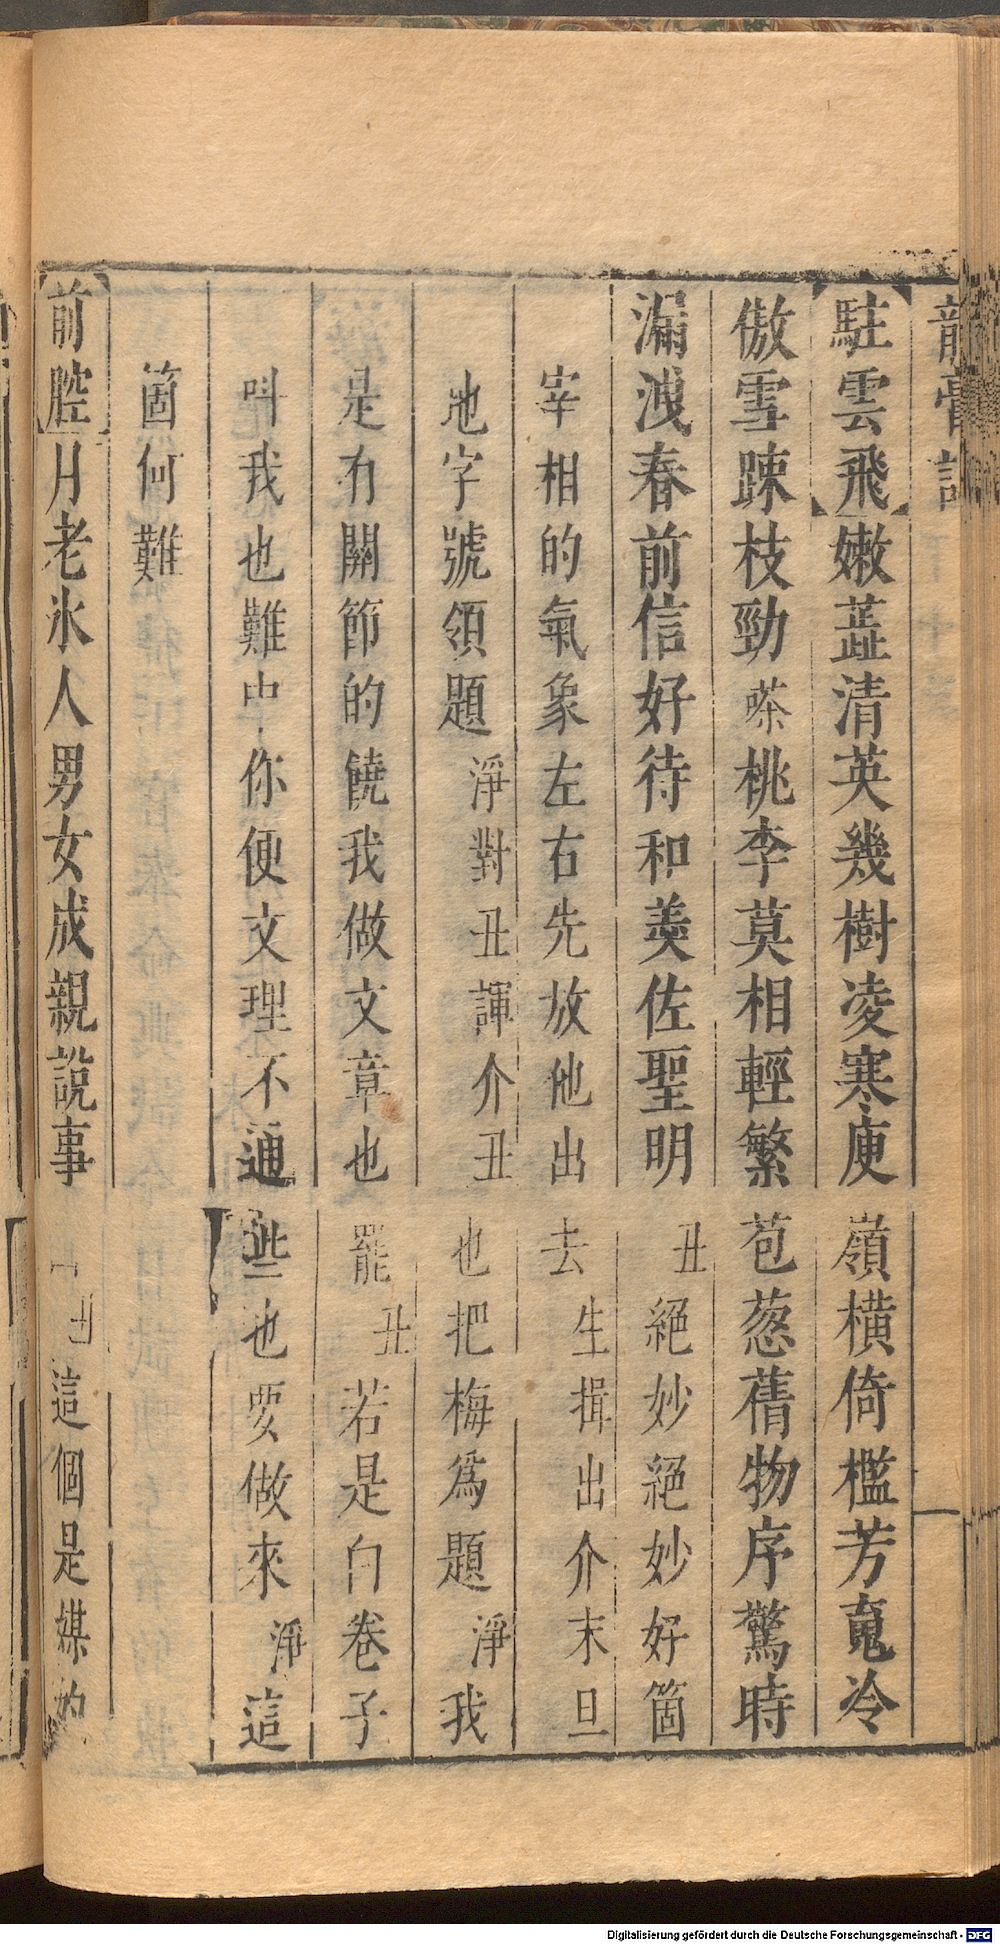 龍膏記
駐雲飛嫩蕋清英幾樹凌寒庾嶺橫倚檻芳䰟冷
傲雪踈枝勁嗏桃李莫相輕繁苞葱蒨物序驚時
漏洩春前信好待和羮佐聖明丑絕妙絕妙好箇
宰相的氣象左右先放他出去生揖出介末旦
地字號領題淨對丑諢介丑也把梅爲題淨我
是有關節的饒我做文章也罷丑若是白卷子
叫我也難中你便文理不通些也要做來淨這
箇何難
前腔月老氷人男女成親說事丑這個是媒的
Digitalisierung gefördert durch die Deutsche Forschungsgemeinschaft - DFG